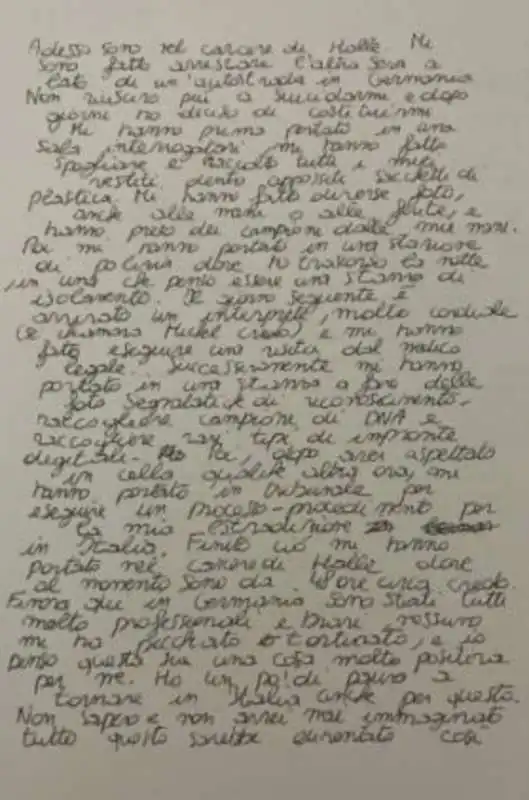 Adesso sono nel carcere di Halle. Mi
sono fatto arrestare l'altra sera a
lato di un'autostrada in Germania
Non riuscivo più a suicidarmi e dopo
giorni ho deciso di costituirmi
Mi hanno prima portato in una
sala interrogatori, mi hanno fatto
spogliare e raccolto tutti i miei
vestiti dentro appositi sacchetti di
plastica. Mi hanno fatto diverse foto,
anche alle mani e alle ferite, e
hanno preso dei campioni dalle mie mani.
Poi mi hanno portato in una stazione
di polizia dove ho trascorso la notte
in una che penso essere una stanza di
isolamento. Il giorno seguente è
arrivato un interprete, molto cordiale
(si chiamava credo) e mi hanno
fatto eseguire una visita dal medico
legale. Successivamente mi hanno
portato in una stanza a fare delle
foto segnaletiche di riconoscimento,
raccogliere campione di DNA e
raccogliere vari tipi di impronte
digitali. Poi, dopo aver aspettato
in cella qualche altra ora, mi
hanno portato in tribunale per
eseguire un processo-procedimento per
la mia estradizione
in Italia. Finito ciò mi hanno
portato nel carcere di Halle dove
al momento sono da ore circa credo.
Finora qui in Germania sono stati tutti
molto professionali e bravi, nessuno
mi ha picchiato o torturato, e io
penso questa sia una cosa molto positiva
per me. Ho un po' di paura a
tornare in Italia anche per questo.
Non sapevo e non avrei mai immaginato
tutto questo sarebbe diventato così